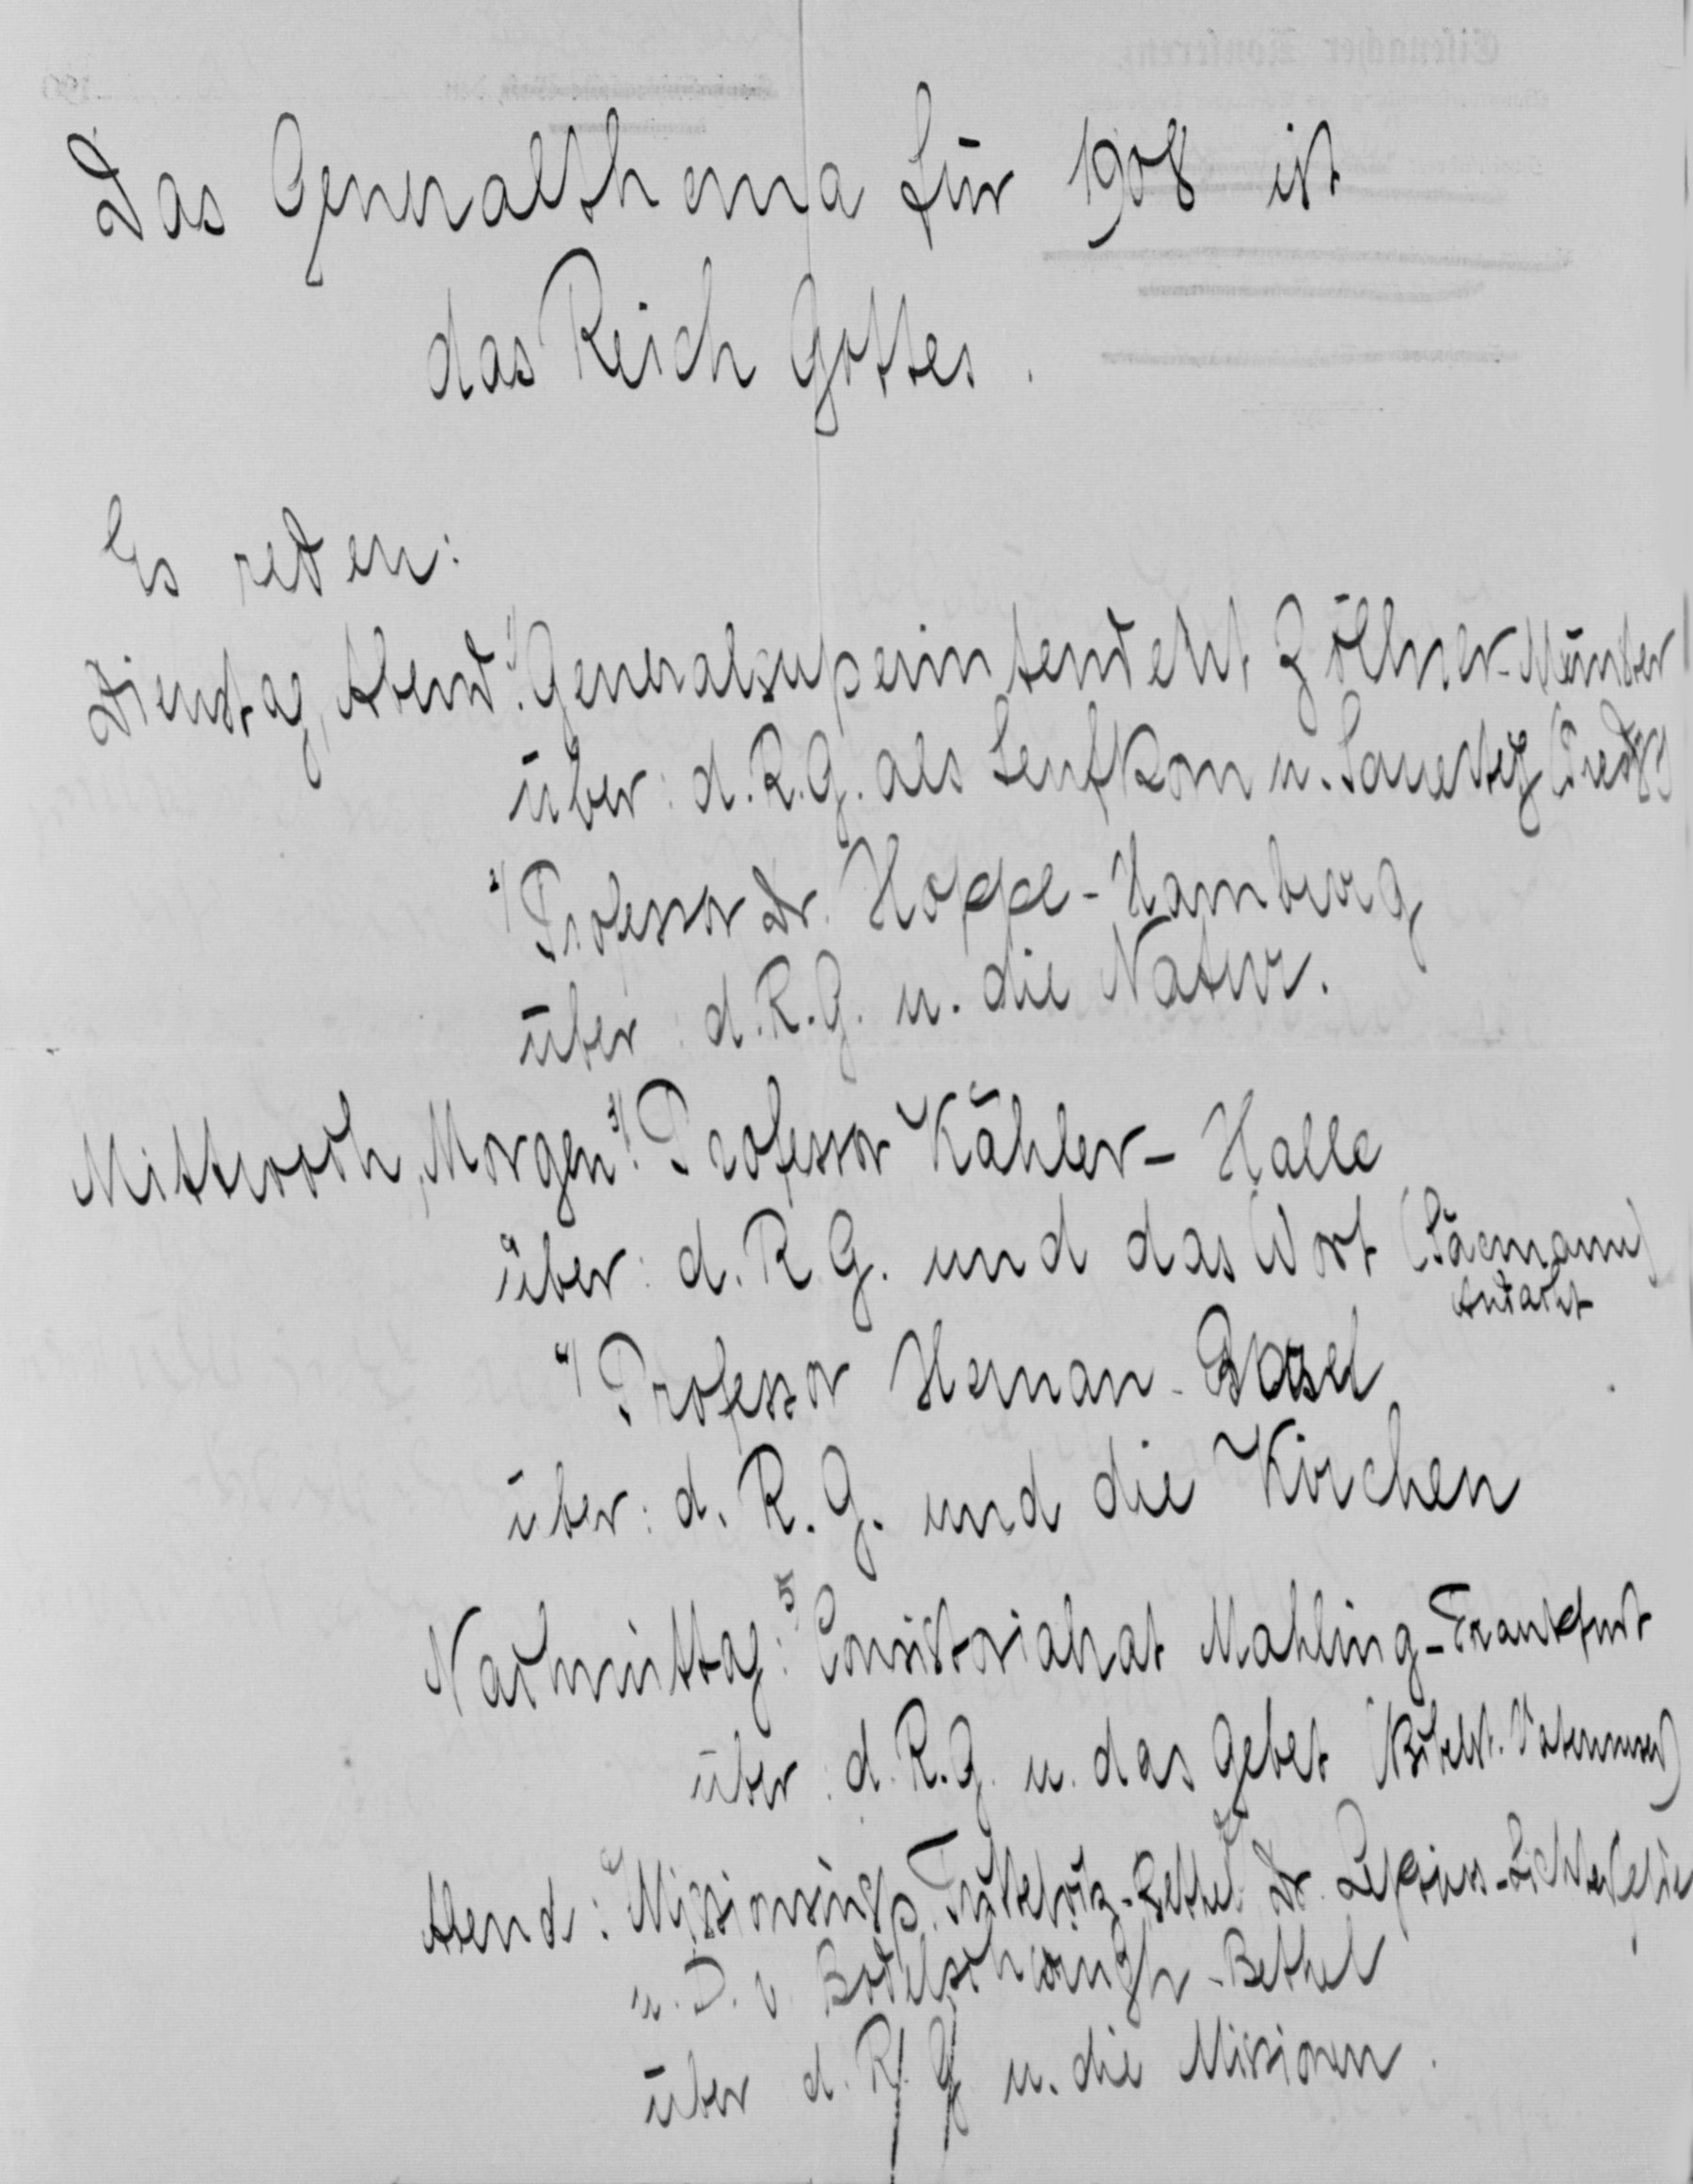 Das Generalthema für 1908 ist
das Reich Gottes.
Es reden:
Dienstag, Abend: 1) Generalsuperintendent Zöllner-Münster
über: d. R. G. als Senfkorn u. Sauerteig (Predigt)
2) Professor Dr. Hoppe-Hamburg
über: d. R. G. u. die Natur.
Mittwoch, Morgen: 3) Professor Kähler-Halle
über: d. R. G. und das Wort (Säemann)
Andacht
4) Professor Heman-Basel
über: d. R. G. und die Kirchen
Nachmittag: 5) Consistorialrat Mahling-Frankfurt
über: d. R. G. u. das Gebet (Bibelst. Vaterunser)
Abend: Missionsinsp. Trittelvitz-Bethel Dr. Lepsius-Lichterfelde
u. D. v. Bodelschwingh-Bethel
über d. R. G. u. die Missionen.